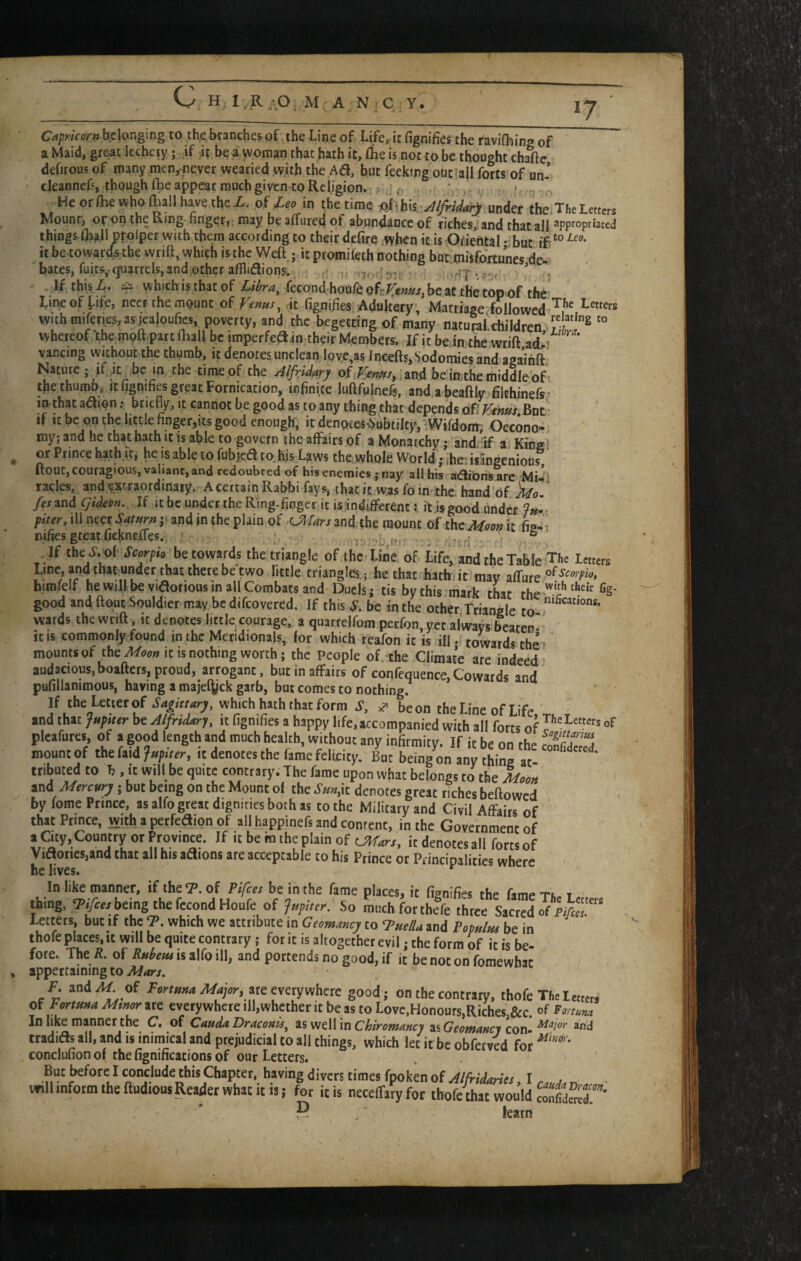 CHIROMANCY. 17
Capricorn belonging to the branches of the Line of Life, it ſignifies the raviſhing of
a Maid, great lechery; if it be a woman that hath it, ſhe is not to be thought chaſte,
deſirous of many men, never wearied with the Act, but ſeeking out all ſorts of un-
cleanneſs, though ſhe appear much given to Religion.
He or ſhe who ſhall have the L. of Leo in the time of his Alfridary under the
Mount, or on the Ring-finger, may be aſſured of abundance of riches, and that all
things ſhall proſper with them according to their deſire when it is Oriental; but if
it be towards the wriſt, which is the Weſt; it promiſeth nothing but misfortunes, de-
bates, ſuits, quarrels, and other afflictions.
The Letters
appropriated
to Leo.
If this L. ♎ which is that of Libra, ſecond houſe of Venus, be at the top of the
Line of Life, neer the mount of Venus, it ſignifies Adultery, Marriage followed
with miſeries, as jealouſies, poverty, and the begetting of many natural children,
whereof the moſt part ſhall be imperfect in their Members. If it be in the wriſt, ad-
vancing without the thumb, it denotes unclean love, as Inceſts, Sodomies and againſt
Nature; if it be in the time of the Alfridary of Venus, and be in the middle of
the thumb, it ſignifies great Fornication, infinite luſtfulneſs, and a beaſtly filthineſs
in that action: briefly, it cannot be good as to any thing that depends of Venus, But
if it be on the little finger, its good enough, it denotes Subtilty, Wiſdom, Oecono-
my; and he that hath it is able to govern the affairs of a Monarchy; and if a King
or Prince hath it, he is able to ſubject to his Laws the whole World; he is ingenious,
ſtout, couragious, valiant, and redoubted of his enemies; nay all his actions are Mi-
racles, and extraordinary. A certain Rabbi ſays, that it was ſo in the hand of Mo-
ſes and Gideon. If it be under the Ring-finger it is indifferent: it is good under Ju-
piter, ill neer Saturn; and in the plain of Mars and the mount of the Moon it ſig-
nifies great ſickneſſes.
The Letters
relating to
Libra.
If the S. of Scorpio be towards the triangle of the Line of Life, and the Table
Line, and that under that there be two little triangles; he that hath it may aſſure
himſelf he will be victorious in all Combats and Duels; tis by this mark that the
good and ſtout Souldier may be diſcovered. If this S. be in the other Triangle to-
wards the wriſt, it denotes little courage, a quarrelſom perſon, yet always beaten;
it is commonly found in the Meridionals, for which reaſon it is ill; towards the
mounts of the Moon it is nothing worth; the People of the Climate are indeed
audacious, boaſters, proud, arrogant, but in affairs of conſequence, Cowards and
puſillanimous, having a majeſtick garb, but comes to nothing.
The Letters
of Scorpio,
with their ſig-
nifications.
If the Letter of Sagittary, which hath that form S, ♐ be on the Line of Life
and that Jupiter be Alfridary, it ſignifies a happy life, accompanied with all ſorts of
pleaſures, of a good length and much health, without any infirmity. If it be on the
mount of the ſaid Jupiter, it denotes the ſame felicity. But being on any thing at-
tributed to ♄, it will be quite contrary. The ſame upon what belongs to the Moon
and Mercury; but being on the Mount of the Sun, it denotes great riches beſtowed
by ſome Prince, as alſo great dignities both as to the Military and Civil Affairs of
that Prince, with a perfection of all happineſs and content, in the Government of
a City, Country or Province. If it be in the plain of Mars, it denotes all ſorts of
Victories, and that all his actions are acceptable to his Prince or Principalities where
he lives.
The Letters of
Sagittarius
conſidered.
In like manner, if the P. of Piſces be in the ſame places, it ſignifies the ſame
thing, Piſces being the ſecond Houſe of Jupiter. So much for theſe three Sacred
Letters, but if the P. which we attribute in Geomancy to Puella and Populus be in
thoſe places, it will be quite contrary; for it is altogether evil; the form of it is be-
fore. The R. of Rubeus is alſo ill, and portends no good, if it be not on ſomewhat
appertaining to Mars.
The Letters
of Piſces.
F. and M. of Fortuna Major, are everywhere good; on the contrary, thoſe
of Fortuna Minor are everywhere ill, whether it be as to Love, Honours, Riches, &c.
In like manner the C. of Cauda Draconis, as well in Chiromancy as Geomancy con-
tradicts all, and is inimical and prejudicial to all things, which let it be obſerved for
concluſion of the ſignifications of our Letters.
The Letters
of Fortuna
Major and
Minor.
But before I conclude this Chapter, having divers times ſpoken of Alfridaries, I
will inform the ſtudious Reader what it is; for it is neceſſary for thoſe that would
Cauda Dracon.
conſidered.
D
learn